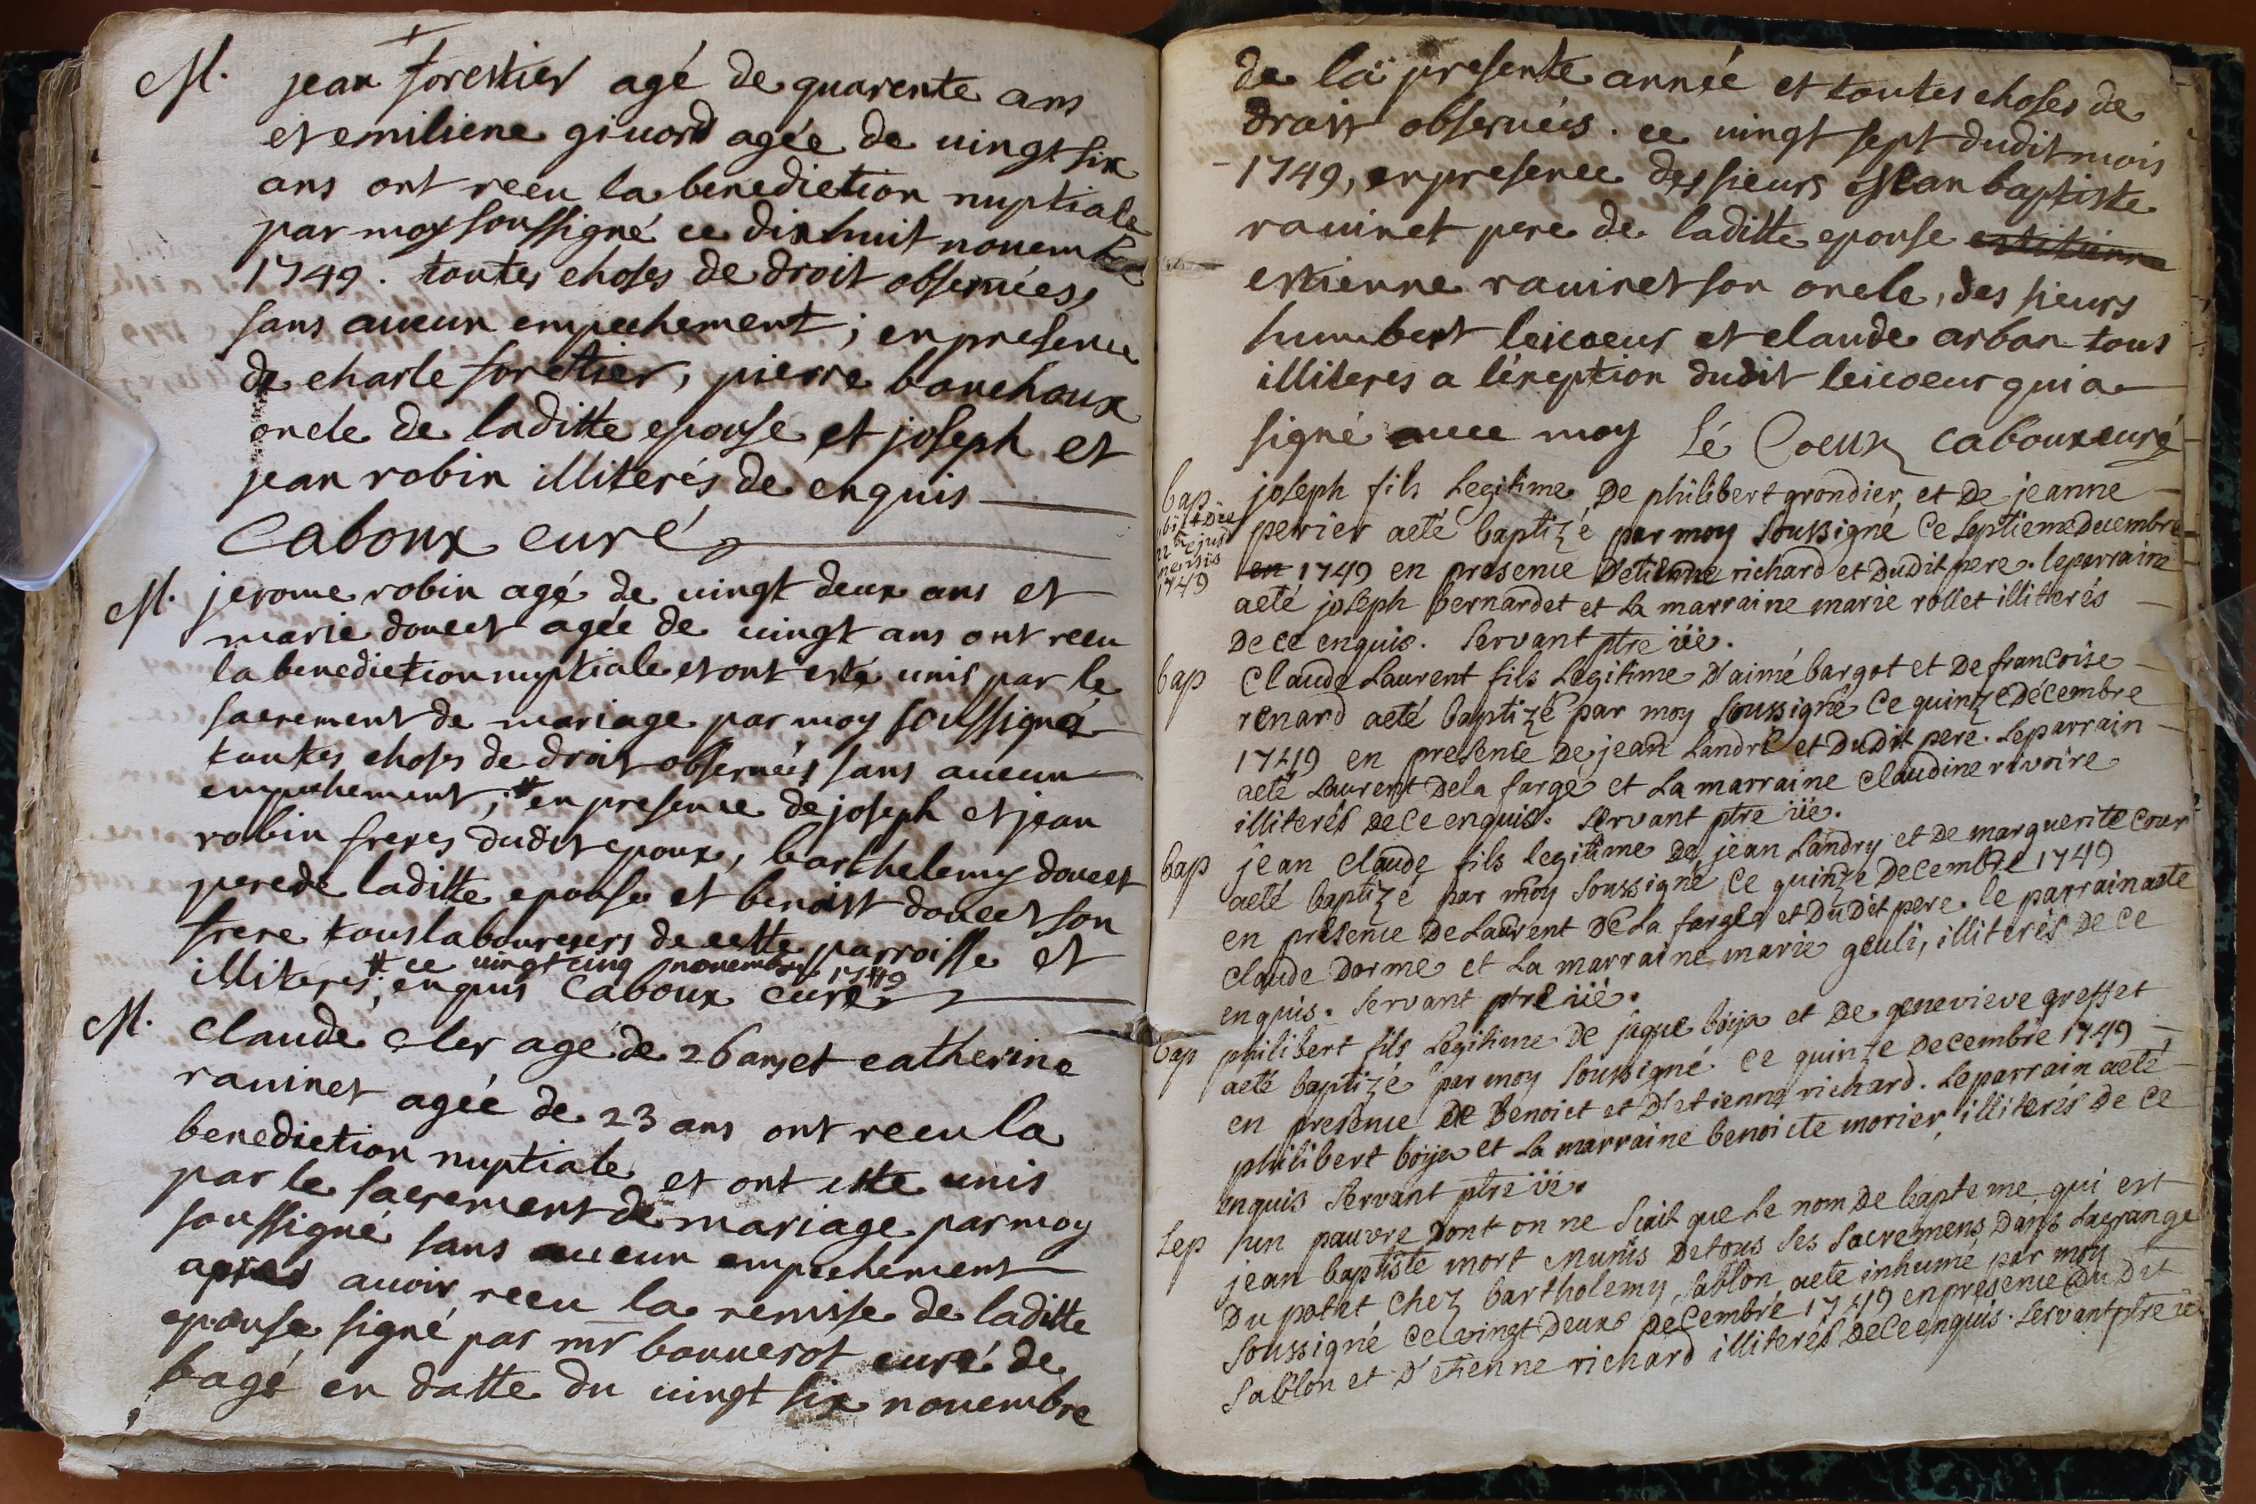 M. jean forestier agé de quarente ans
et emiliene givord agée de vingt six
ans ont receu la benediction nuptiale
par moy soussigné ce dix huit novembre
1749. toutes choses de droit observées,
sans aucun empechement; en presence
de charle foretier, pierre bouchoux
oncle de laditte epouse et joseph et
jean robin illiterés de enquis
Caboux curé
M. jerome robin agé de vingt deux ans et
marie doucet agée de vingt ans ont receu
la benediction nuptiale et ont esté unis par le
sacrement de mariage par moy soussigné
toutes choses de droit observées sans aucun
empechement; # en presence de joseph et jean
robin freres dudit epoux, barthelemy doucet
pere de laditte epouse et benoist doucet son
frere tous laboureurs de cette parroisse et
# ce vingt cinq novembre 1749
illiteres, enquis Caboux curé
M. Claude Cler agé de 26 ans et catherine
ravinet agée de 23 ans ont receu la
benediction nuptiale et ont esté unis
par le sacrement de mariage par moy
soussigné sans aucun empechement
apres avoir receu la remise de laditte
epouse signé par mr bonnerot curé de
bagé en datte du vingt six novembre
de la presente année et toutes choses de
droit observées. ce vingt sept dudit mois
1749, en presence des sieurs jean baptiste
ravinet pere de laditte epouse estienne
estienne ravinet son oncle, des sieurs
humbert leicoeur et claude arban tous
illiteres a l'éxeption dudit leicoeur qui a
signé avec moy Lé Coeur caboux curé
bap joseph fils legitime de philibert grondier, et de jeanne
obiit die
22 a ejusd
mensis
1749
perier aeté baptizé par moy soussigné ce septieme decembre
en 1749 en presence d'etienne richard et dudit pere. le parraine
aeté joseph bernardet et la marraine marie rollet illiterés
de ce enquis. Servant ptre vie.
bap Claude Laurent fils legitime d'aimé bargot et de francoise
renard aeté baptizé par moy soussigné ce quinze décembre
1749 en presence de jean Landré et dudit pere. le parrain
aeté Laurent Dela farge et la marraine Claudine rivoire
illiterés de ce enquis. Servant ptre vie.
bap jean Claude fils legitime de jean Landry et de marguerite cour
aeté baptizé par moy soussigné ce quinze decembre 1749
en presence de Laurent de la farge et dudit pere. le parrain aeté
claude Dorme et la marraine marie geuli, illiterés de ce
enquis. Servant ptre vié.
bap philibert fils legitime de jaque boija et de genevieve gresset
aeté baptizé par moy soussigné ce quinze decembre 1749
en presence de Benoict et d'etienne richard. le parrain aeté
philibert boija et la marraine benoicte morier, illiterés de ce
enquis Servant ptre vie.
Sep hun pauvre dont on ne scait que le nom de bapteme qui est
jean baptiste mort Munis de tous ses sacremens dans la grange
Du potet Chez bartholemy Sablon, aeté inhumé par moy
soussigné ce vingt deuxe decembre 1749 en presence dudit
Sablon et d'etienne richard illiterés de ce enquis. Servant ptre vie